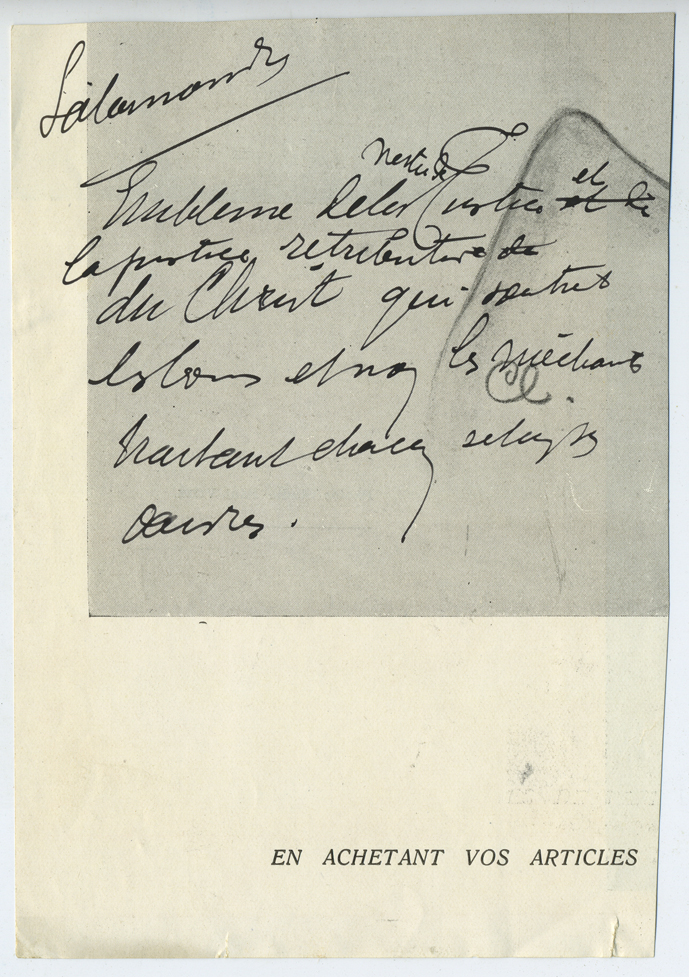 Salamandre
Emblème de la Justice et
la justice rétributive
du Christ qui
les bons et non les méchants
traitant chacun selon ses
œuvres.
EN ACHETANT VOS ARTICLES